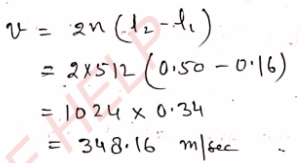 v = 2n (l₂ - l₁)
= 2×512 (0.50 - 0.16)
= 1024 × 0.34
= 348.16 m/sec
E HELP